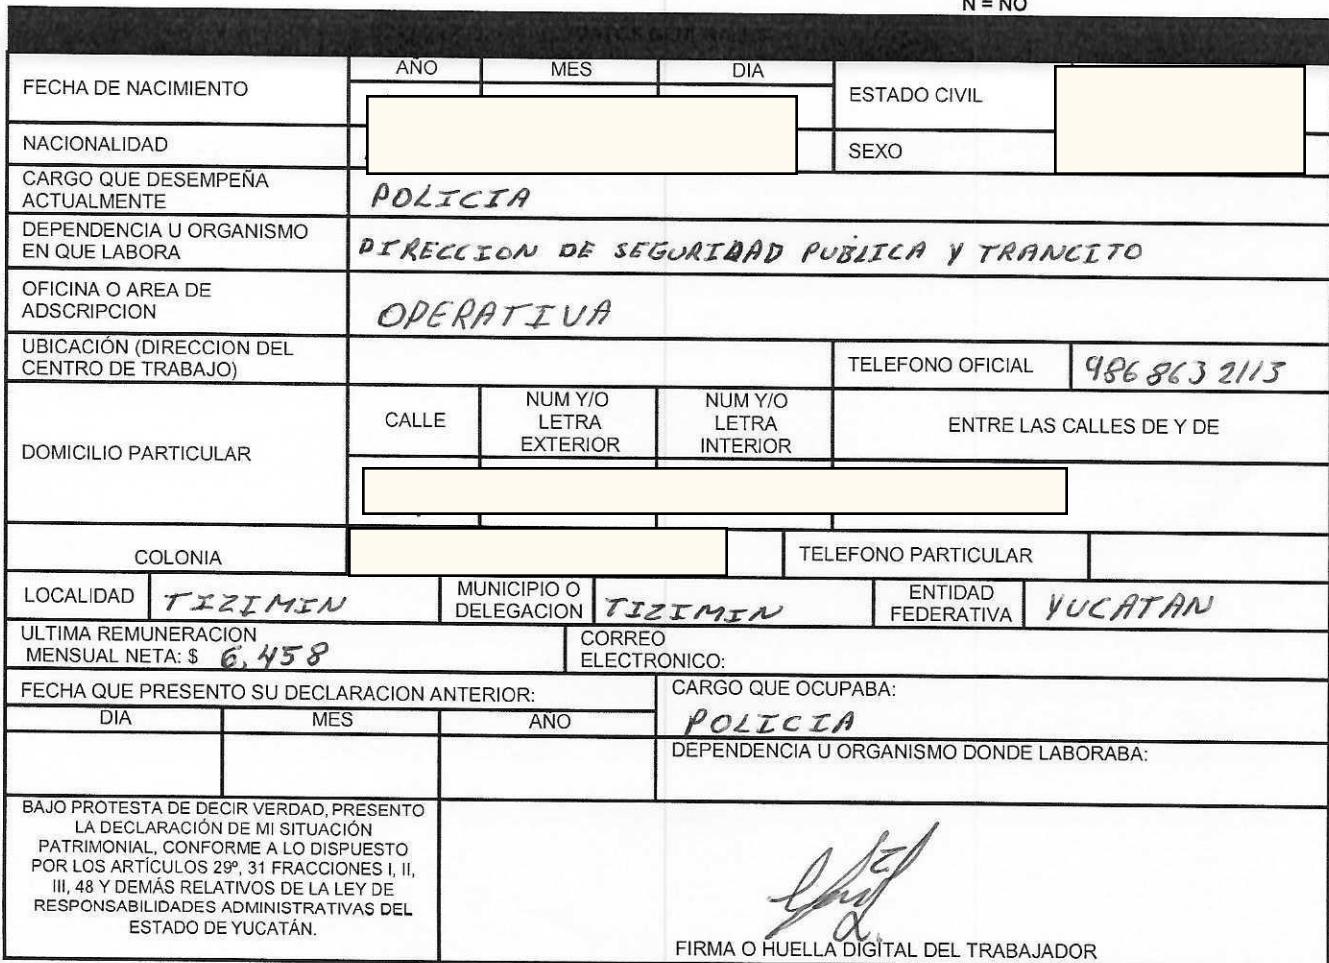 N = NO
DATOS GENERALES
FECHA DE NACIMIENTO
AÑO MES DIA
ESTADO CIVIL
NACIONALIDAD
SEXO
CARGO QUE DESEMPEÑA
ACTUALMENTE
POLICIA
DEPENDENCIA U ORGANISMO
EN QUE LABORA
DIRECCION DE SEGURIDAD PUBLICA Y TRANCITO
OFICINA O AREA DE
ADSCRIPCION
OPERATIVA
UBICACIÓN (DIRECCION DEL
CENTRO DE TRABAJO)
TELEFONO OFICIAL 986 863 2113
DOMICILIO PARTICULAR
CALLE
NUM Y/O
LETRA
EXTERIOR
NUM Y/O
LETRA
INTERIOR
ENTRE LAS CALLES DE Y DE
COLONIA
TELEFONO PARTICULAR
LOCALIDAD TIZIMIN
MUNICIPIO O
DELEGACION TIZIMIN
ENTIDAD
FEDERATIVA YUCATAN
ULTIMA REMUNERACION
MENSUAL NETA: $ 6,458
CORREO
ELECTRONICO:
FECHA QUE PRESENTO SU DECLARACION ANTERIOR:
DIA MES AÑO
CARGO QUE OCUPABA:
POLICIA
DEPENDENCIA U ORGANISMO DONDE LABORABA:
BAJO PROTESTA DE DECIR VERDAD, PRESENTO
LA DECLARACIÓN DE MI SITUACIÓN
PATRIMONIAL, CONFORME A LO DISPUESTO
POR LOS ARTÍCULOS 29º, 31 FRACCIONES I, II,
III, 48 Y DEMÁS RELATIVOS DE LA LEY DE
RESPONSABILIDADES ADMINISTRATIVAS DEL
ESTADO DE YUCATÁN.
FIRMA O HUELLA DIGITAL DEL TRABAJADOR